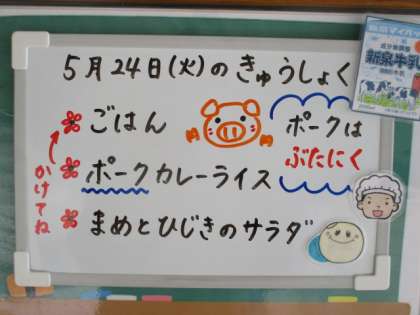 5月24日(火)のきゅうしょく
ごはん
ポークカレーライス
まめとひじきのサラダ
かけてね
ポークは
ぶたにく
新泉牛乳